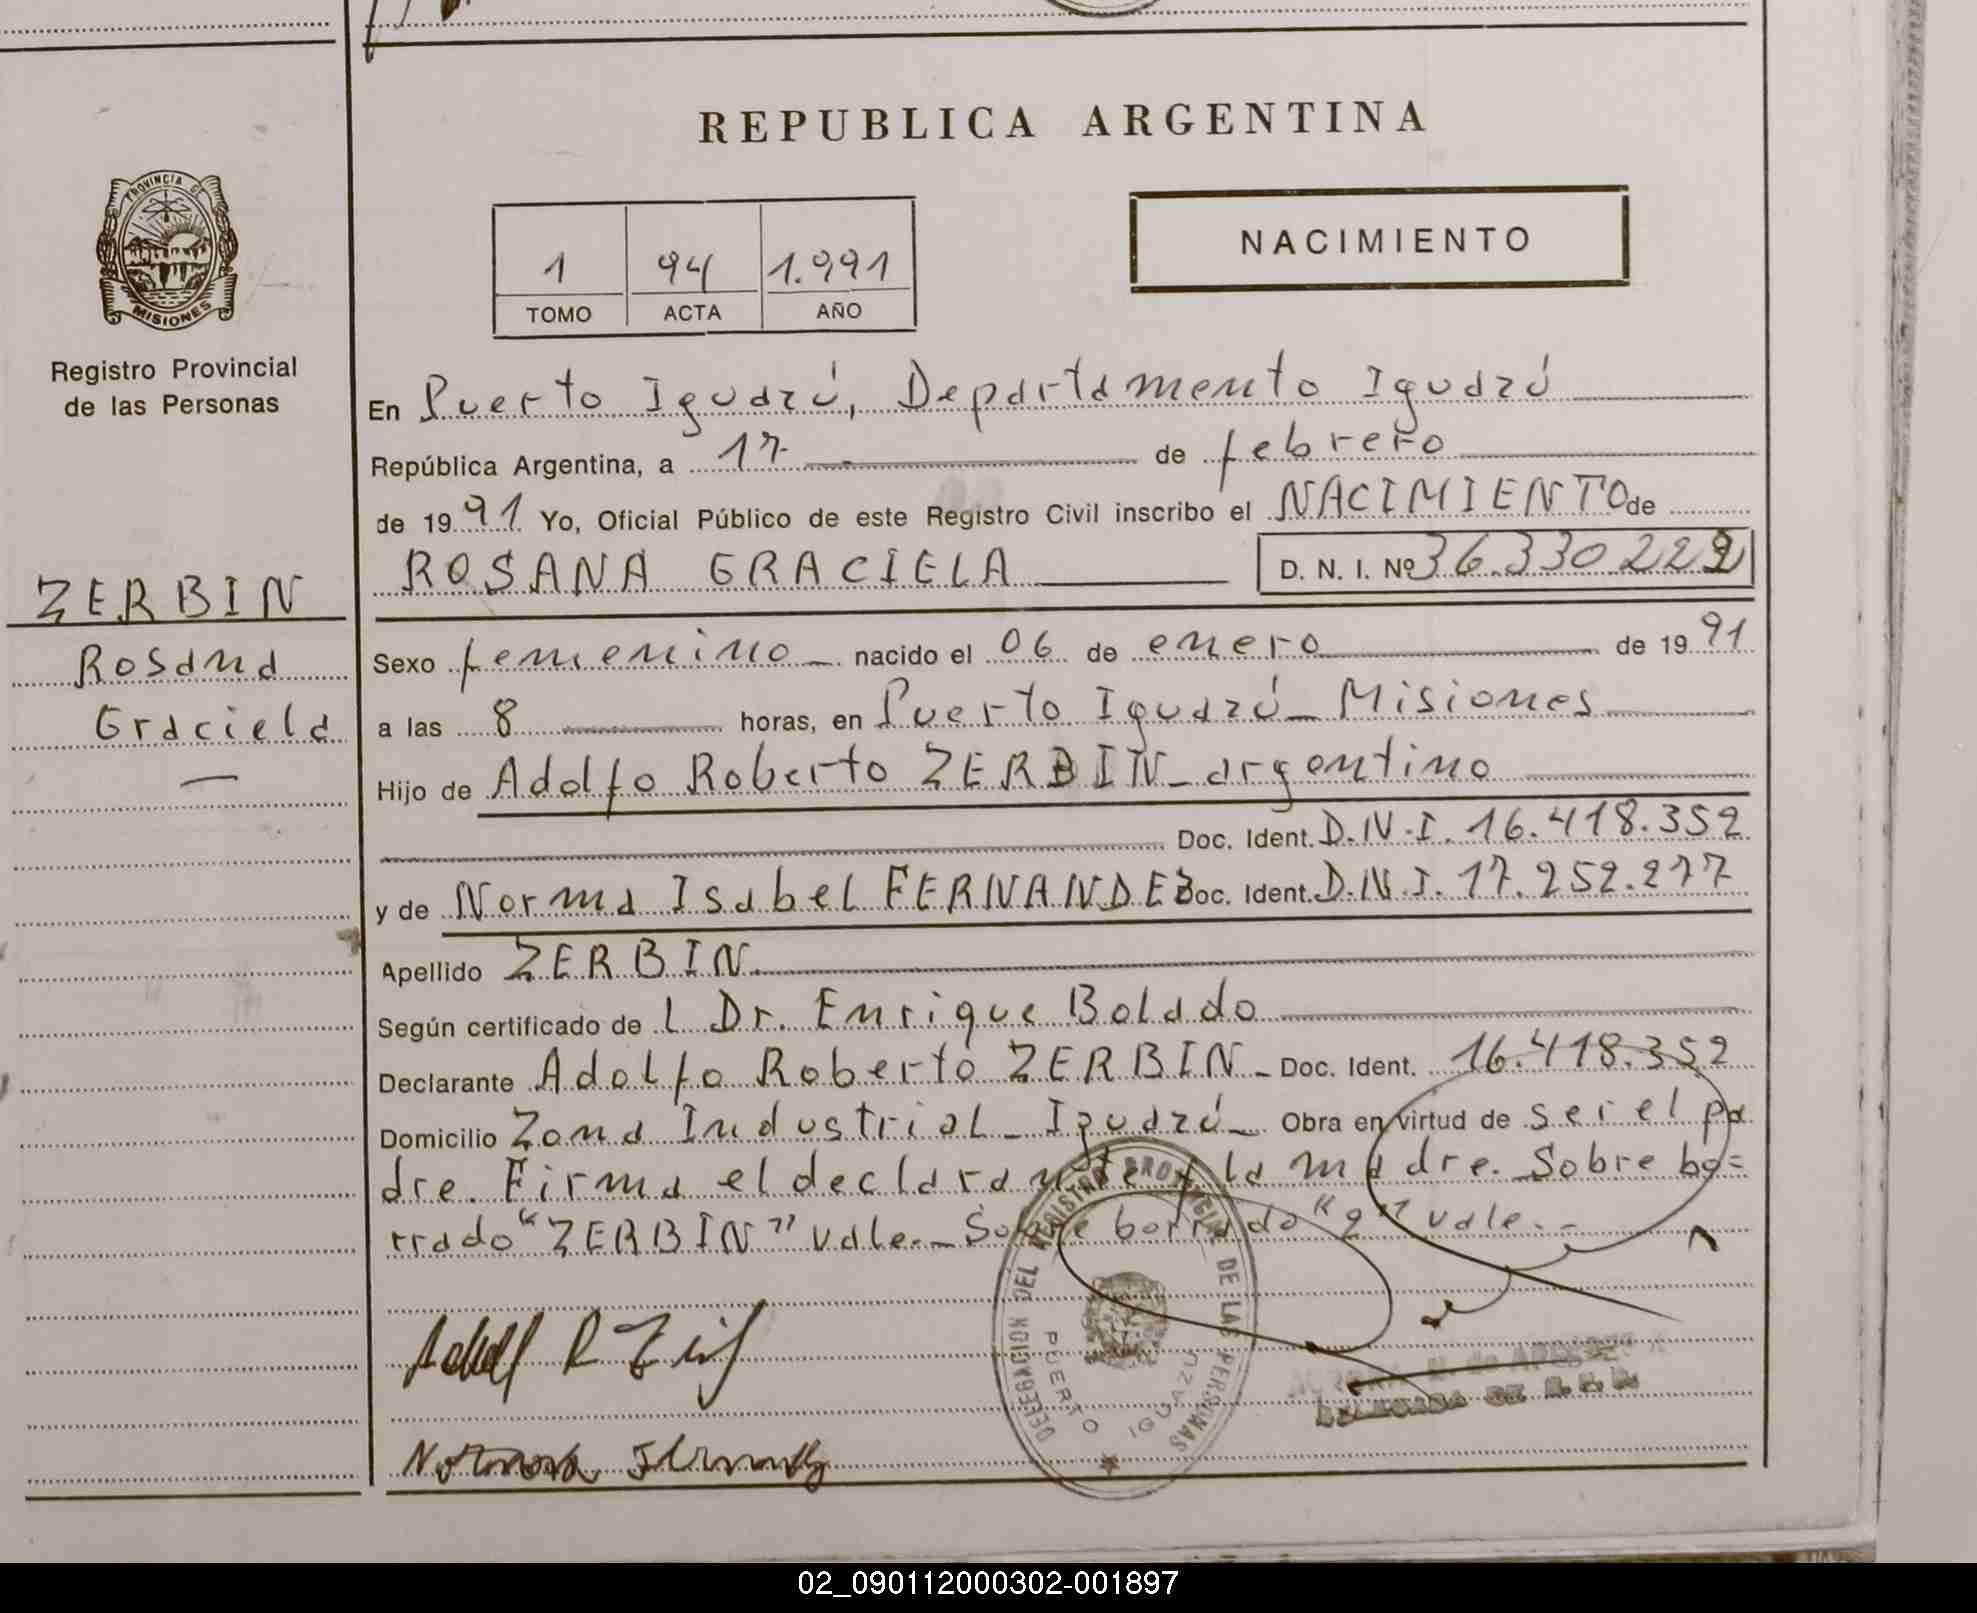 REPUBLICA ARGENTINA
PROVINCIA DE
MISIONES
Registro Provincial
de las Personas
ZERBIN
Rosana
Graciela
1 94 1.991
TOMO ACTA AÑO
NACIMIENTO
En Puerto Iguazú, Departamento Iguazú
República Argentina, a 17 de febrero
de 1991 Yo, Oficial Público de este Registro Civil inscribo el NACIMIENTO de
ROSANA GRACIELA D. N. I. Nº 36.330.222
Sexo femenino nacido el 06 de enero de 1991
a las 8 horas, en Puerto Iguazú - Misiones
Hijo de Adolfo Roberto ZERBIN - argentino
Doc. Ident. D.N.I. 16.418.352
y de Norma Isabel FERNANDEZ Doc. Ident. D.N.I. 17.252.277
Apellido ZERBIN
Según certificado de l Dr. Enrique Bolado
Declarante Adolfo Roberto ZERBIN - Doc. Ident. 16.418.352
Domicilio Zona Industrial - Iguazú - Obra en virtud de ser el pa
dre. Firma el declarante y la madre. Sobre bo=
rrado "ZERBIN" vale. - Sobre borrado "2" vale. -
DELEGACION DEL REGISTRO PROVINCIAL DE LAS PERSONAS
PUERTO IGUAZU
02_090112000302-001897